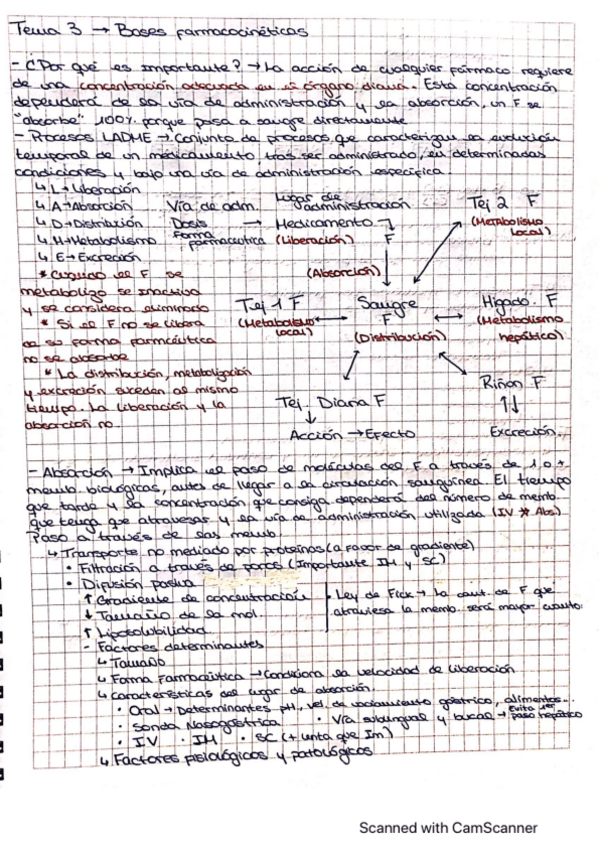 Tema 3 → Bases farmacocinéticas
- ¿Por qué es importante? → La acción de cualquier fármaco requiere
de una concentración adecuada en su órgano diana. Esta concentración
dependerá de la vía de administración y la absorción, un F se
"absorbe" 100% porque pasa a sangre directamente
- Procesos LADME → Conjunto de procesos que caracterizan la evolución
temporal de un medicamento, tras ser administrado, en determinadas
condiciones y bajo una vía de administración específica.
↳ L → Liberación
↳ A → Absorción
↳ D → Distribución
↳ M → Metabolismo
↳ E → Excreción
* Cuando el F se
metaboliza se inactiva
y se considera eliminado
* Si el F no se libera
de su forma farmcéutica
no se absorbe
* La distribución, metabolización
y excreción suceden al mismo
tiempo. La liberación y la
absorción no.
Vía de adm.
Dosis
Forma
farmaceutica
→
Lugar de
administración
Medicamento
(Liberación)
F
(Absorción)
Tej 2 F
(Metabolismo
local)
Tej 1 F
(Metabolismo
local)
↔
Sangre
F
(Distribución)
↔
Hígado F
(Metabolismo
hepático)
Tej. Diana F
↓
Acción → Efecto
Riñon F
↑↓
Excreción
- Absorción → Implica el paso de moléculas del F a través de 1 o +
memb. biológicas, antes de llegar a la circulación sanguínea. El tiempo
que tarde y la concentración que consiga dependerá del número de memb.
que tenga que atravesar y la vía de administración utilizada (IV * Abs)
Paso a través de las memb.
↳ Transporte no mediado por proteínas (a favor de gradiente)
• Filtración a través de poros (Importante IM y SC)
• Difusión pasiva
↑ Gradiente de concentración
↓ Tamaño de la mol.
↑ Liposolubilidad
Ley de Fick → La cant. de F que
atraviesa la memb. será mayor cuanto:
- Factores determinantes
↳ Tamaño
↳ Forma Farmacéutica → Condiciona la velocidad de liberación
↳ Características del lugar de absorción.
• Oral → Determinantes pH, vel. de vaciamiento gástrico, alimentos...
• Sonda Nasogástrica • Vía sublingual y bucal → Evita 1er paso hepático
• IV • IM • SC (+ lenta que Im)
↳ Factores fisiológicos y patológicos
Scanned with CamScanner